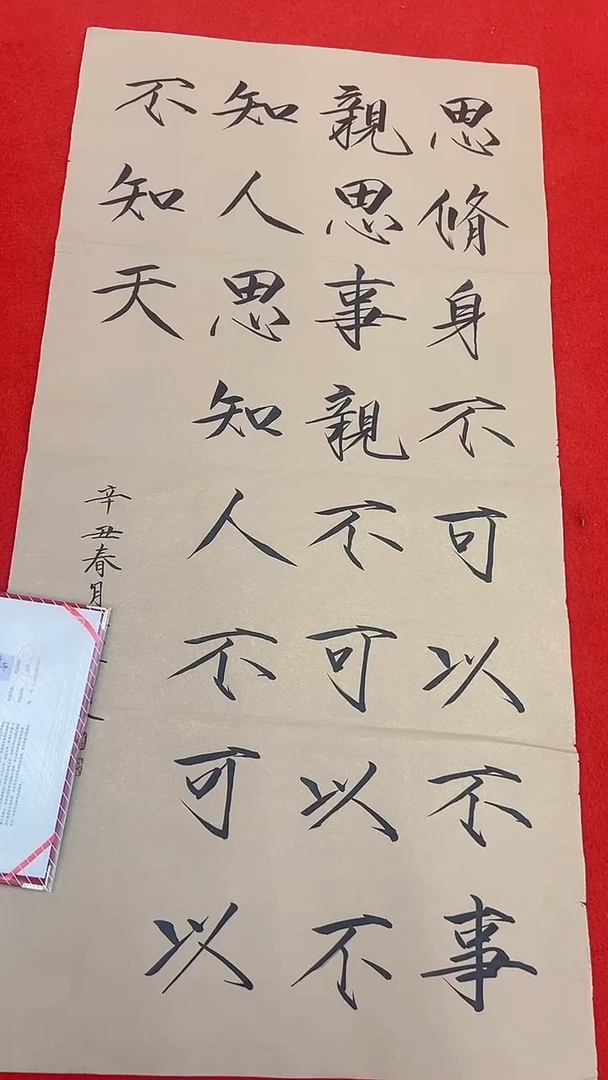 思脩身不可以不事
親思事親不可以不
知人思知人不可以
不知天
辛丑春月